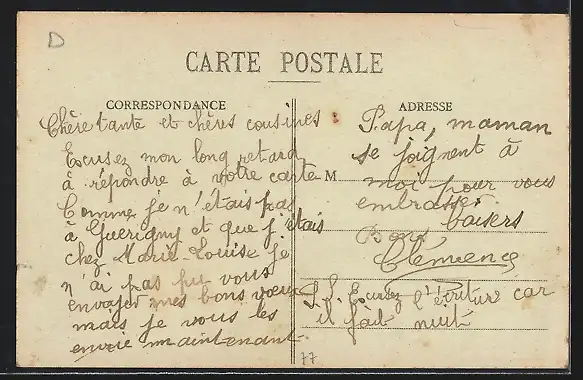 D
CARTE POSTALE
CORRESPONDANCE
Chère tante et chères cousines :
Excusez mon long retard
à répondre à votre carte
Comme je n'étais pas
à Guérigny et que j'étais
chez Marie-Louise je
n'ai pas pu vous
envoyer mes bons vœux
mais je vous les
envoie maintenant.
ADRESSE
Papa, maman
se joignent à
M moi pour vous
embrasser
Bons baisers
Clémence
Excusez l'écriture car
il fait nuit
77